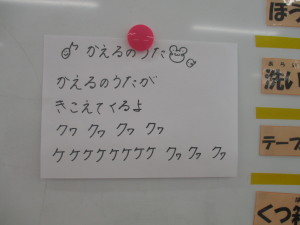 かえるのうた
かえるのうたが
きこえてくるよ
クヮ クヮ クヮ クヮ
ケケケケケケケケ クヮ クヮ クヮ
ほう
あらい
洗い
テープ
くつ箱